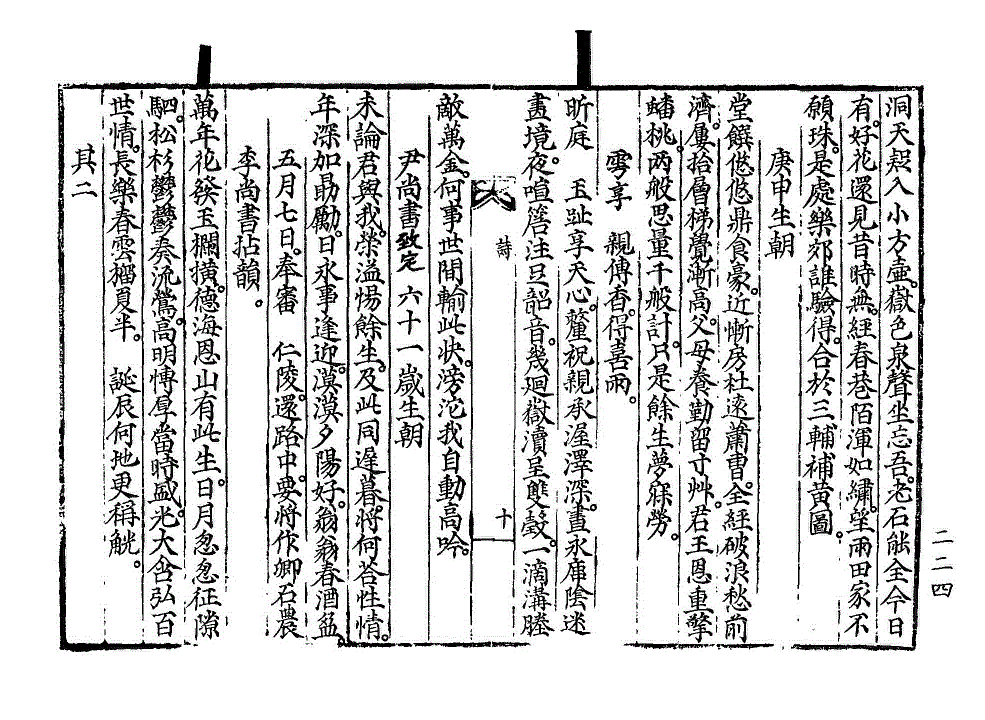 洞天超入小方壺。嶽色泉聲坐忘吾。老石能全今日
有。好花還見昔時無。經春巷陌渾如繡。望雨田家不
願珠。是處樂郊誰驗得。合於三輔補黃圖。
庚申生朝
堂饌悠悠鼎食豪。近慚房杜遠蕭曹。全經破浪愁前
濟。屢拾層梯覺漸高。父母養勤留寸艸。君王恩重擎
蟠桃。兩般思量千般計。只是餘生夢寐勞。
雩享 親傳香。得喜雨。
昕庭 玉趾享天心。釐祝親承渥澤深。晝永庫陰迷
畫境。夜喧簷注旦韶音。幾廻嶽瀆呈雙瑴。一滴溝塍
詩
十
敵萬金。何事世間輸此快。滂沱我自動高吟。
尹尚書致定 六十一歲生朝
未論君與我。榮溢惕餘生。及此同遲暮。將何荅性情。
年深加勗勵。日永事逢迎。漠漠夕陽好。翁翁春酒盈。
五月七日。奉審 仁陵。還路中。要將作卿石農
李尚書拈韻。
萬年花發玉欄橫。德海恩山有此生。日月忽忽征隙
駟。松杉鬱鬱奏流鶯。高明博厚當時盛。光大含弘百
世情。長樂春雲榴夏半。 誕辰何地更稱觥。
其二
二二四